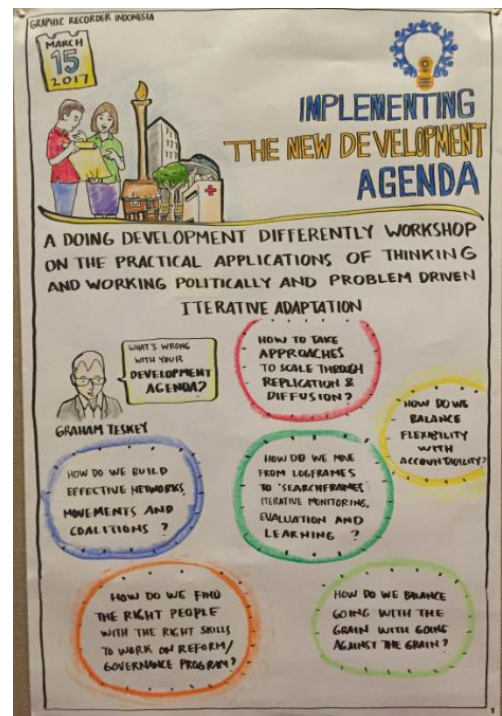 GRAPHIC RECORDER INDONESIA
MARCH
15
2017
IMPLEMENTING
THE NEW DEVELOPMENT
AGENDA
A DOING DEVELOPMENT DIFFERENTLY WORKSHOP
ON THE PRACTICAL APPLICATIONS OF THINKING
AND WORKING POLITICALLY AND PROBLEM DRIVEN
ITERATIVE ADAPTATION
WHAT'S WRONG
WITH YOUR
DEVELOPMENT
AGENDA?
GRAHAM TESKEY
HOW TO TAKE
APPROACHES
TO SCALE THROUGH
REPLICATION &
DIFFUSION?
HOW DO WE
BALANCE
FLEXIBILITY
WITH
ACCOUNTABILITY?
HOW DO WE BUILD
EFFECTIVE NETWORKS,
MOVEMENTS AND
COALITIONS ?
HOW DO WE MOVE
FROM LOGFRAMES
TO 'SEARCHFRAMES'
ITERATIVE MONITORING,
EVALUATION AND
LEARNING ?
HOW DO WE FIND
THE RIGHT PEOPLE
WITH THE RIGHT SKILLS
TO WORK ON REFORM/
GOVERNANCE PROGRAM?
HOW DO WE BALANCE
GOING WITH THE
GRAIN WITH GOING
AGAINST THE GRAIN?